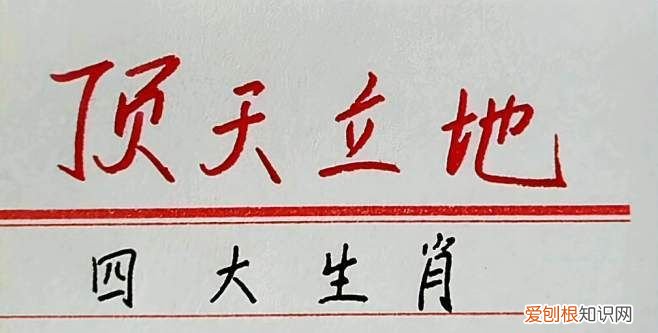 顶天立地
四大生肖
爱刨根知识网